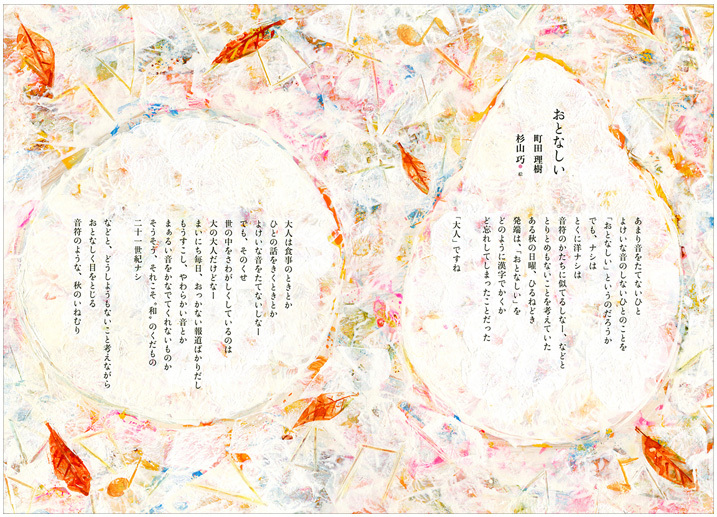 おとなしい
町田 理樹
杉山 巧 絵
あまり音をたてないひと
よけいな音のしないひとのことを
「おとなしい」というのだろうか
でも、ナシは
とくに洋ナシは
音符のかたちに似てるしなー、などと
とりとめもないことを考えていた
ある秋の日曜、ひるねどき
発端は、「おとなしい」を
どのように漢字でかくか
ど忘れしてしまったことだった
「大人」ですね
大人は食事のときとか
ひとの話をきくときとか
よけいな音をたてないしなー
でも、そのくせ
世の中をさわがしくしているのは
大の大人だけどなー
まいにち毎日、おっかない報道ばかりだし
もうすこし、やわらかい音とか
まぁるい音をかなでてくれないものか
そうそう、それこそ“和”のくだもの
二十一世紀ナシ
などと、どうしようもないこと考えながら
おとなしく目をとじる
音符のような、秋のいねむり